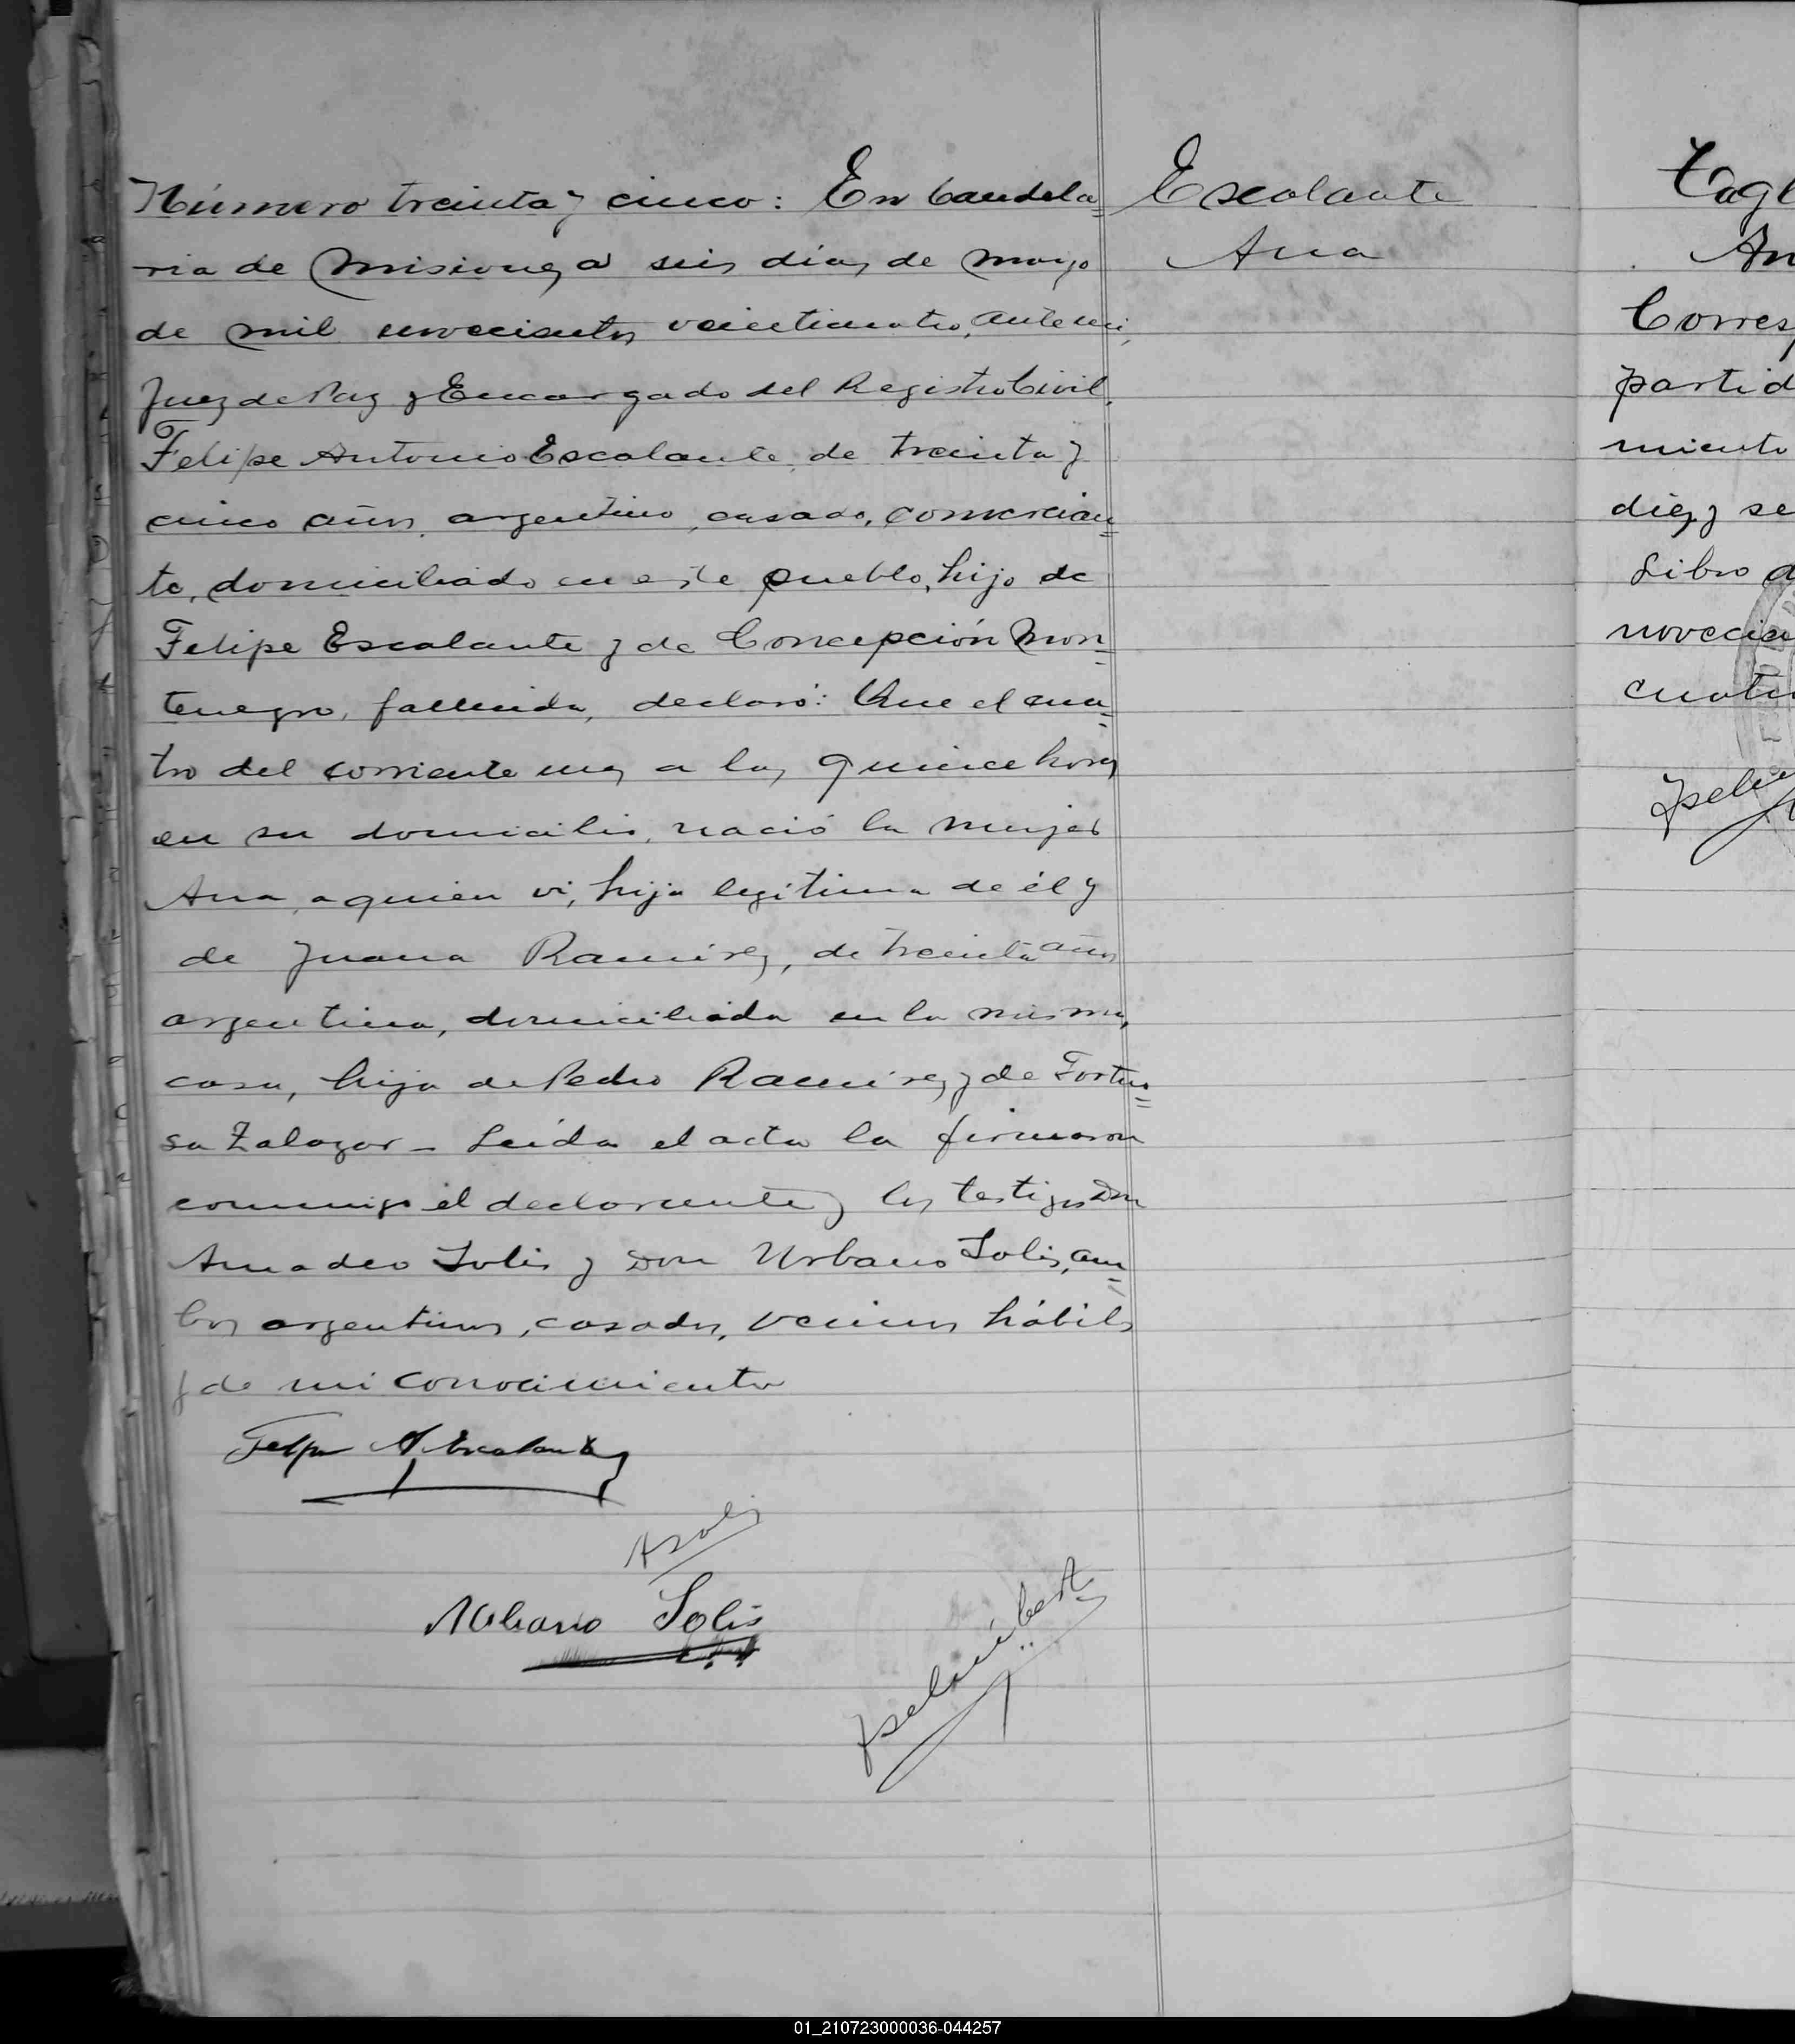 Número treinta y cinco: En Candela=
ria de Misiones a seis días de mayo
de mil novecientos veinticuatro, ante mi,
Juez de Paz y Encargado del Registro Civil,
Felipe Antonio Escalante, de treinta y
cinco años, argentino, casado, comercian=
te, domiciliado en este pueblo, hijo de
Felipe Escalante y de Concepción Mon=
tenegro, fallecida, declaró: Que el cua=
tro del corriente mes a las quince horas
en su domicilio, nació la mujer
Ana, a quien vi, hija legítima de él y
de Juana Ramírez, de treinta años
argentina, domiciliada en la misma
casa, hija de Pedro Ramírez y de Fortu=
sa Zalazar - Leída el acta la firmaron
conmigo el declarante y los testigos Don
Amadeo Solis y Don Urbano Solis, am=
bos argentinos, casados, vecinos hábiles
y de mi conocimiento
Felipe A. Escalante
A Solis
Urbano Solis
Escalante
Ana
Tagl
An
Corresp
partid
miento
diez y se
Libro d
novecien
cuatro
01_210723000036-044257